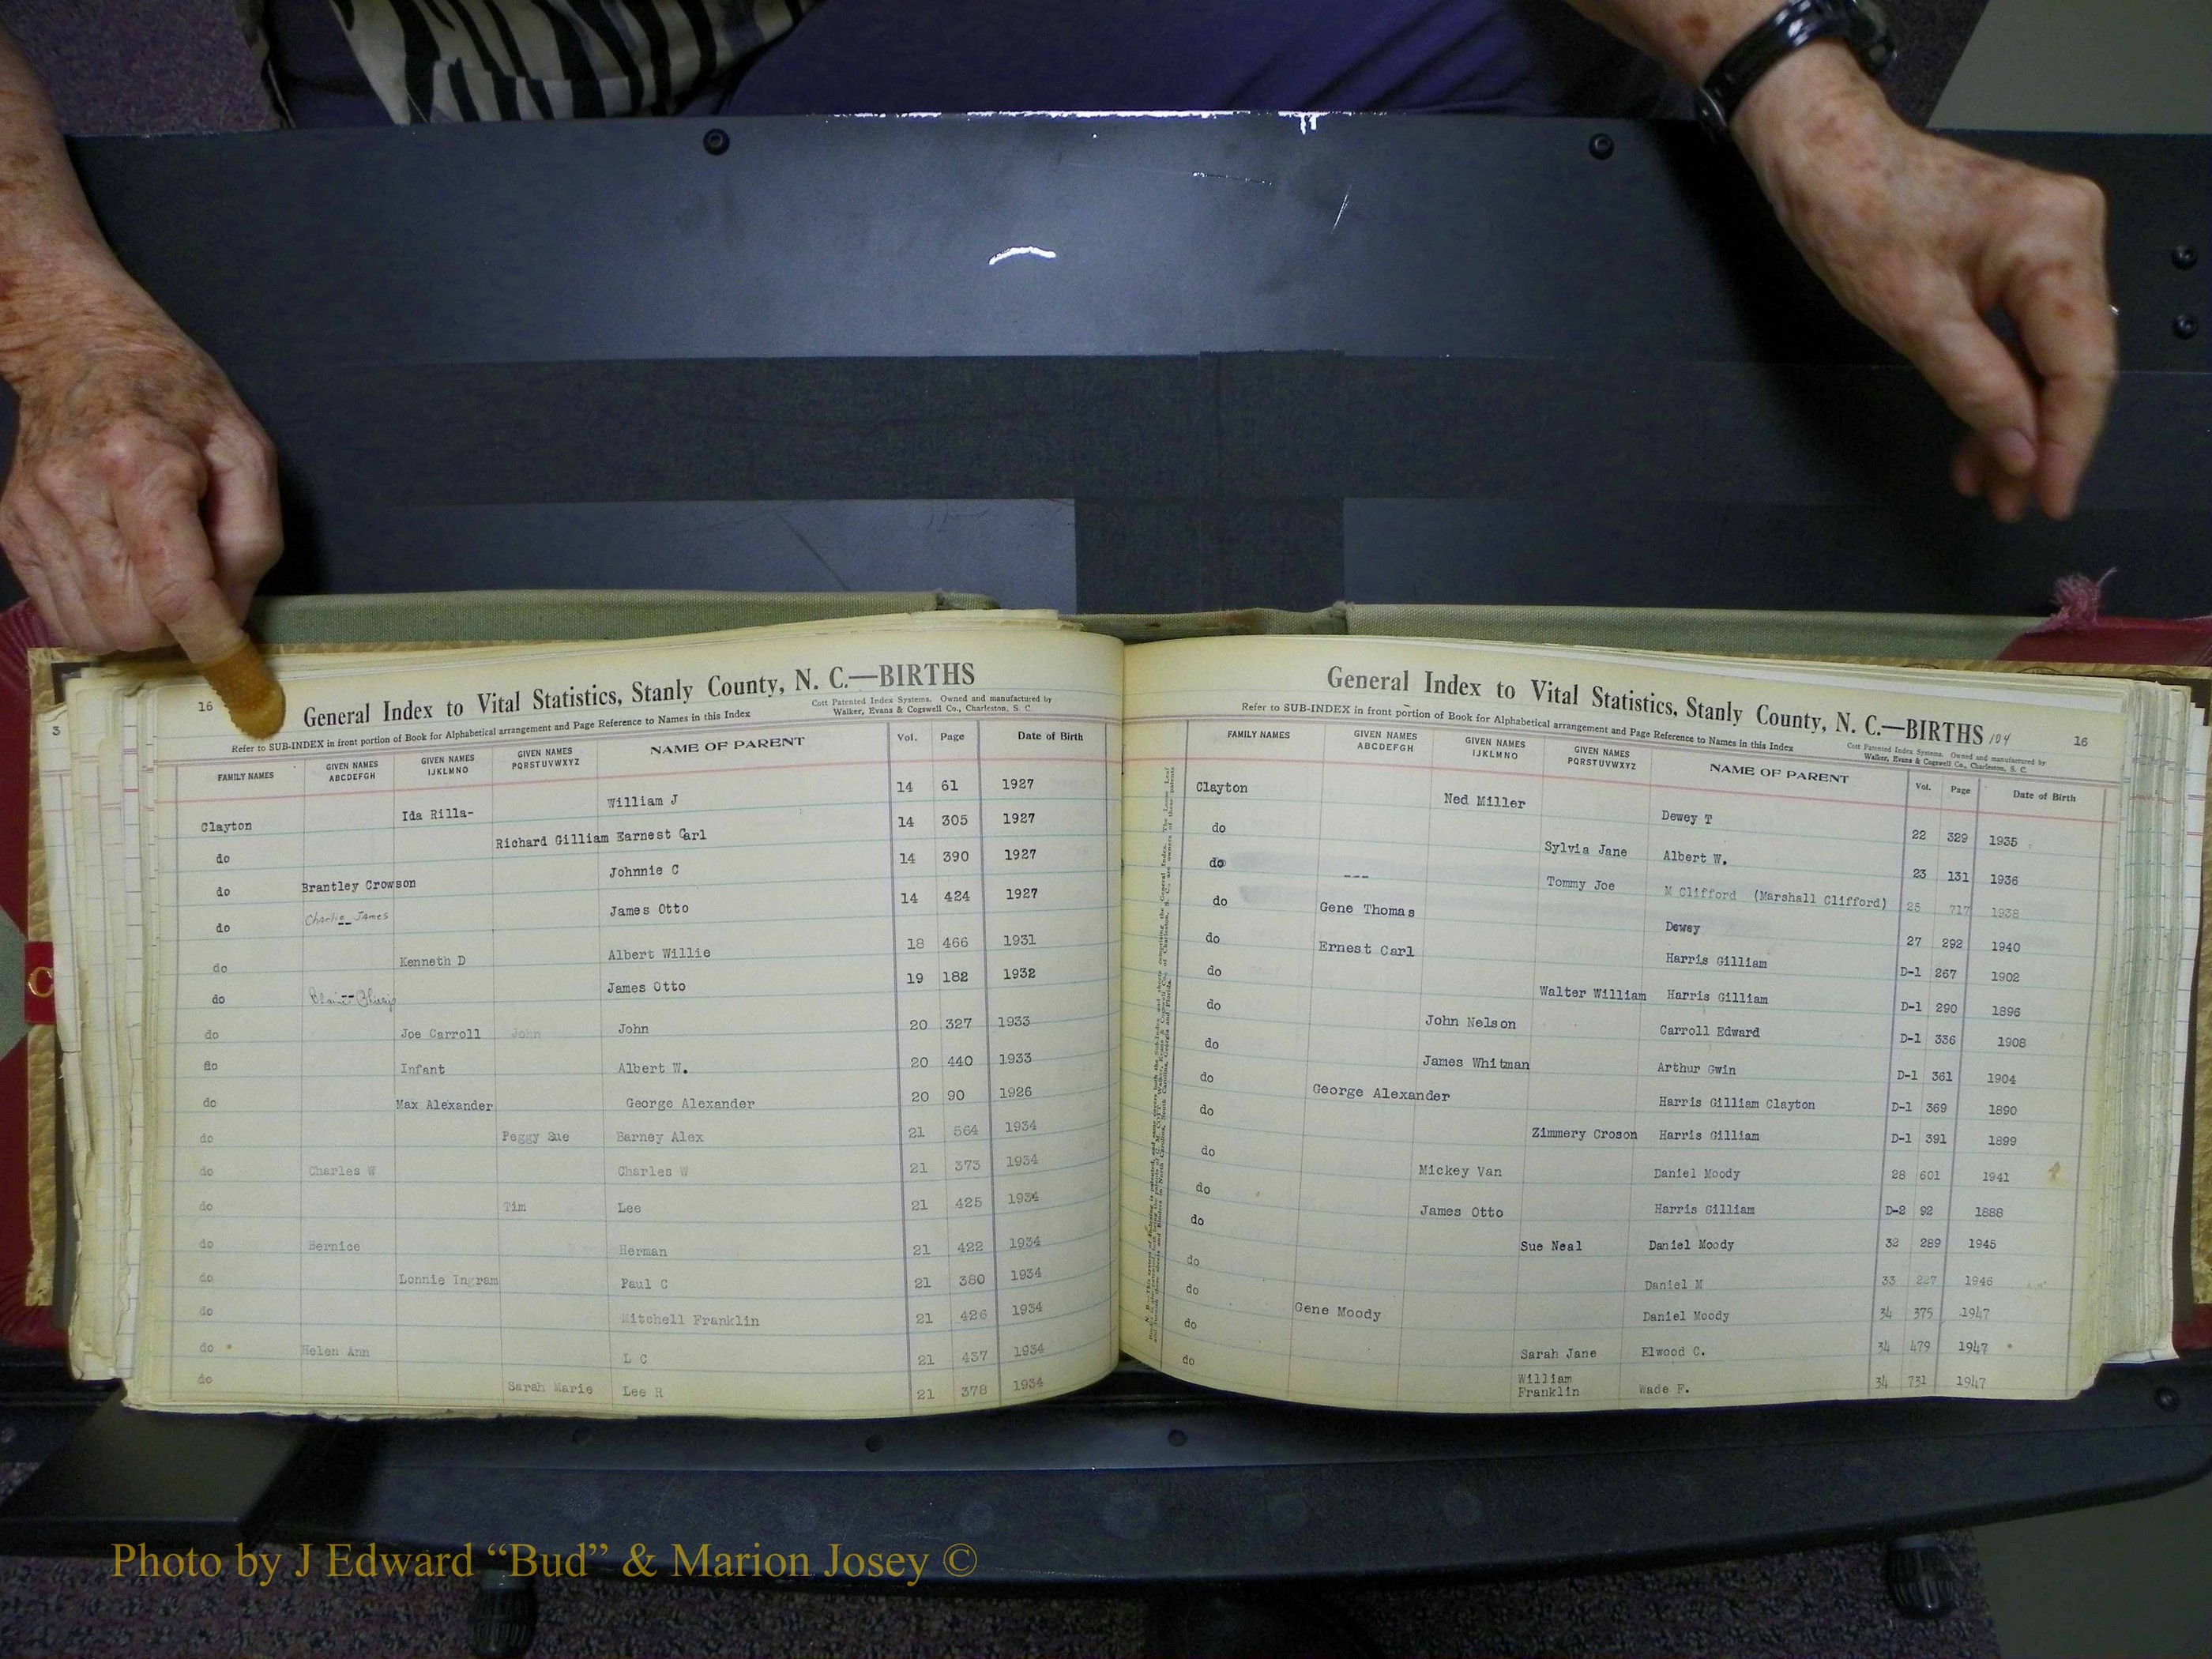 16
General Index to Vital Statistics, Stanly County, N. C.—BIRTHS
Refer to SUB-INDEX in front portion of Book for Alphabetical arrangement and Page Reference to Names in this Index
Cott Patented Index Systems. Owned and manufactured by
Walker, Evans & Cogswell Co., Charleston, S. C.
FAMILY NAMES GIVEN NAMES ABCDEFGH GIVEN NAMES IJKLMNO GIVEN NAMES PQRSTUVWXYZ NAME OF PARENT Vol. Page Date of Birth
Clayton Ida Rilla- William J 14 61 1927
do Richard Gilliam Earnest Carl 14 305 1927
do Brantley Crowson Johnnie C 14 390 1927
do Charlie James James Otto 14 424 1927
do Kenneth D Albert Willie 18 466 1931
do James Otto 19 182 1932
do Joe Carroll John John 20 327 1933
do Infant Albert W. 20 440 1933
do Max Alexander George Alexander 20 90 1926
do Peggy Sue Barney Alex 21 564 1934
do Charles W Charles W 21 373 1934
do Tim Lee 21 425 1934
do Bernice Herman 21 422 1934
do Lonnie Ingram Paul C 21 380 1934
do Mitchell Franklin 21 426 1934
do Helen Ann L C 21 437 1934
do Sarah Marie Lee R 21 378 1934
3
C
General Index to Vital Statistics, Stanly County, N. C.—BIRTHS 104 16
Refer to SUB-INDEX in front portion of Book for Alphabetical arrangement and Page Reference to Names in this Index
Cott Patented Index Systems. Owned and manufactured by
Walker, Evans & Cogswell Co., Charleston, S. C.
FAMILY NAMES GIVEN NAMES ABCDEFGH GIVEN NAMES IJKLMNO GIVEN NAMES PQRSTUVWXYZ NAME OF PARENT Vol. Page Date of Birth
Clayton Ned Miller Dewey T 22 329 1935
do Sylvia Jane Albert W. 23 131 1936
do --- Tommy Joe M Clifford (Marshall Clifford) 25 717 1938
do Gene Thomas Dewey 27 292 1940
do Ernest Carl Harris Gilliam D-1 267 1902
do Walter William Harris Gilliam D-1 290 1896
do John Nelson Carroll Edward D-1 336 1908
do James Whitman Arthur Gwin D-1 361 1904
do George Alexander Harris Gilliam Clayton D-1 369 1890
do Zimmery Croson Harris Gilliam D-1 391 1899
do Mickey Van Daniel Moody 28 601 1941
do James Otto Harris Gilliam D-2 92 1888
do Sue Neal Daniel Moody 32 289 1945
do Daniel M 33 227 1946
do Gene Moody Daniel Moody 34 375 1947
do Sarah Jane Elwood C. 34 479 1947
do William Franklin Wade F. 34 731 1947
Photo by J Edward “Bud” & Marion Josey ©